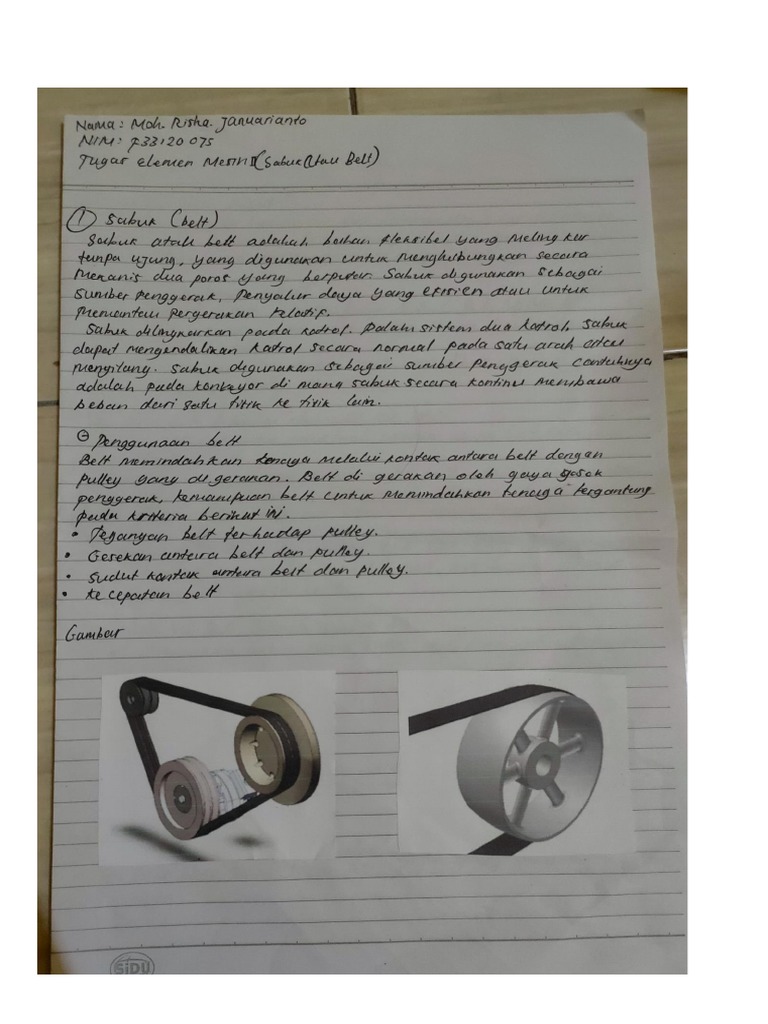 Nama: Moh. Risha. Januarianto
NIM: F33120075
Tugas elemen Mesin II (Sabuk atau Belt)
① Sabuk (belt)
Sabuk atau belt adalah bahan fleksibel yang melingkar
tanpa ujung, yang digunakan untuk menghubungkan secara
Mekanis dua poros yang berputar. Sabuk digunakan sebagai
sumber penggerak, Penyalur daya yang efisien atau untuk
Memantau pergerakan relatif.
Sabuk dilingkarkan pada katrol. Dalam sistem dua katrol, sabuk
dapat mengendalikan katrol secara normal pada satu arah atau
menyilang. Sabuk digunakan sebagai sumber penggerak contohnya
adalah pada konveyor di mana sabuk secara kontinu membawa
beban dari satu titik ke titik lain.
Penggunaan belt
Belt memindahkan tenaga melalui kontak antara belt dengan
pulley yang di gerakan. Belt di gerakan oleh gaya gesek
penggerak, kemampuan belt untuk memindahkan tenaga tergantung
pada kriteria berikut ini.
• Tegangan belt terhadap pulley.
• Gesekan antara belt dan pulley.
• Sudut kontak antara belt dan pulley.
• Kecepatan belt
Gambar
SiDU